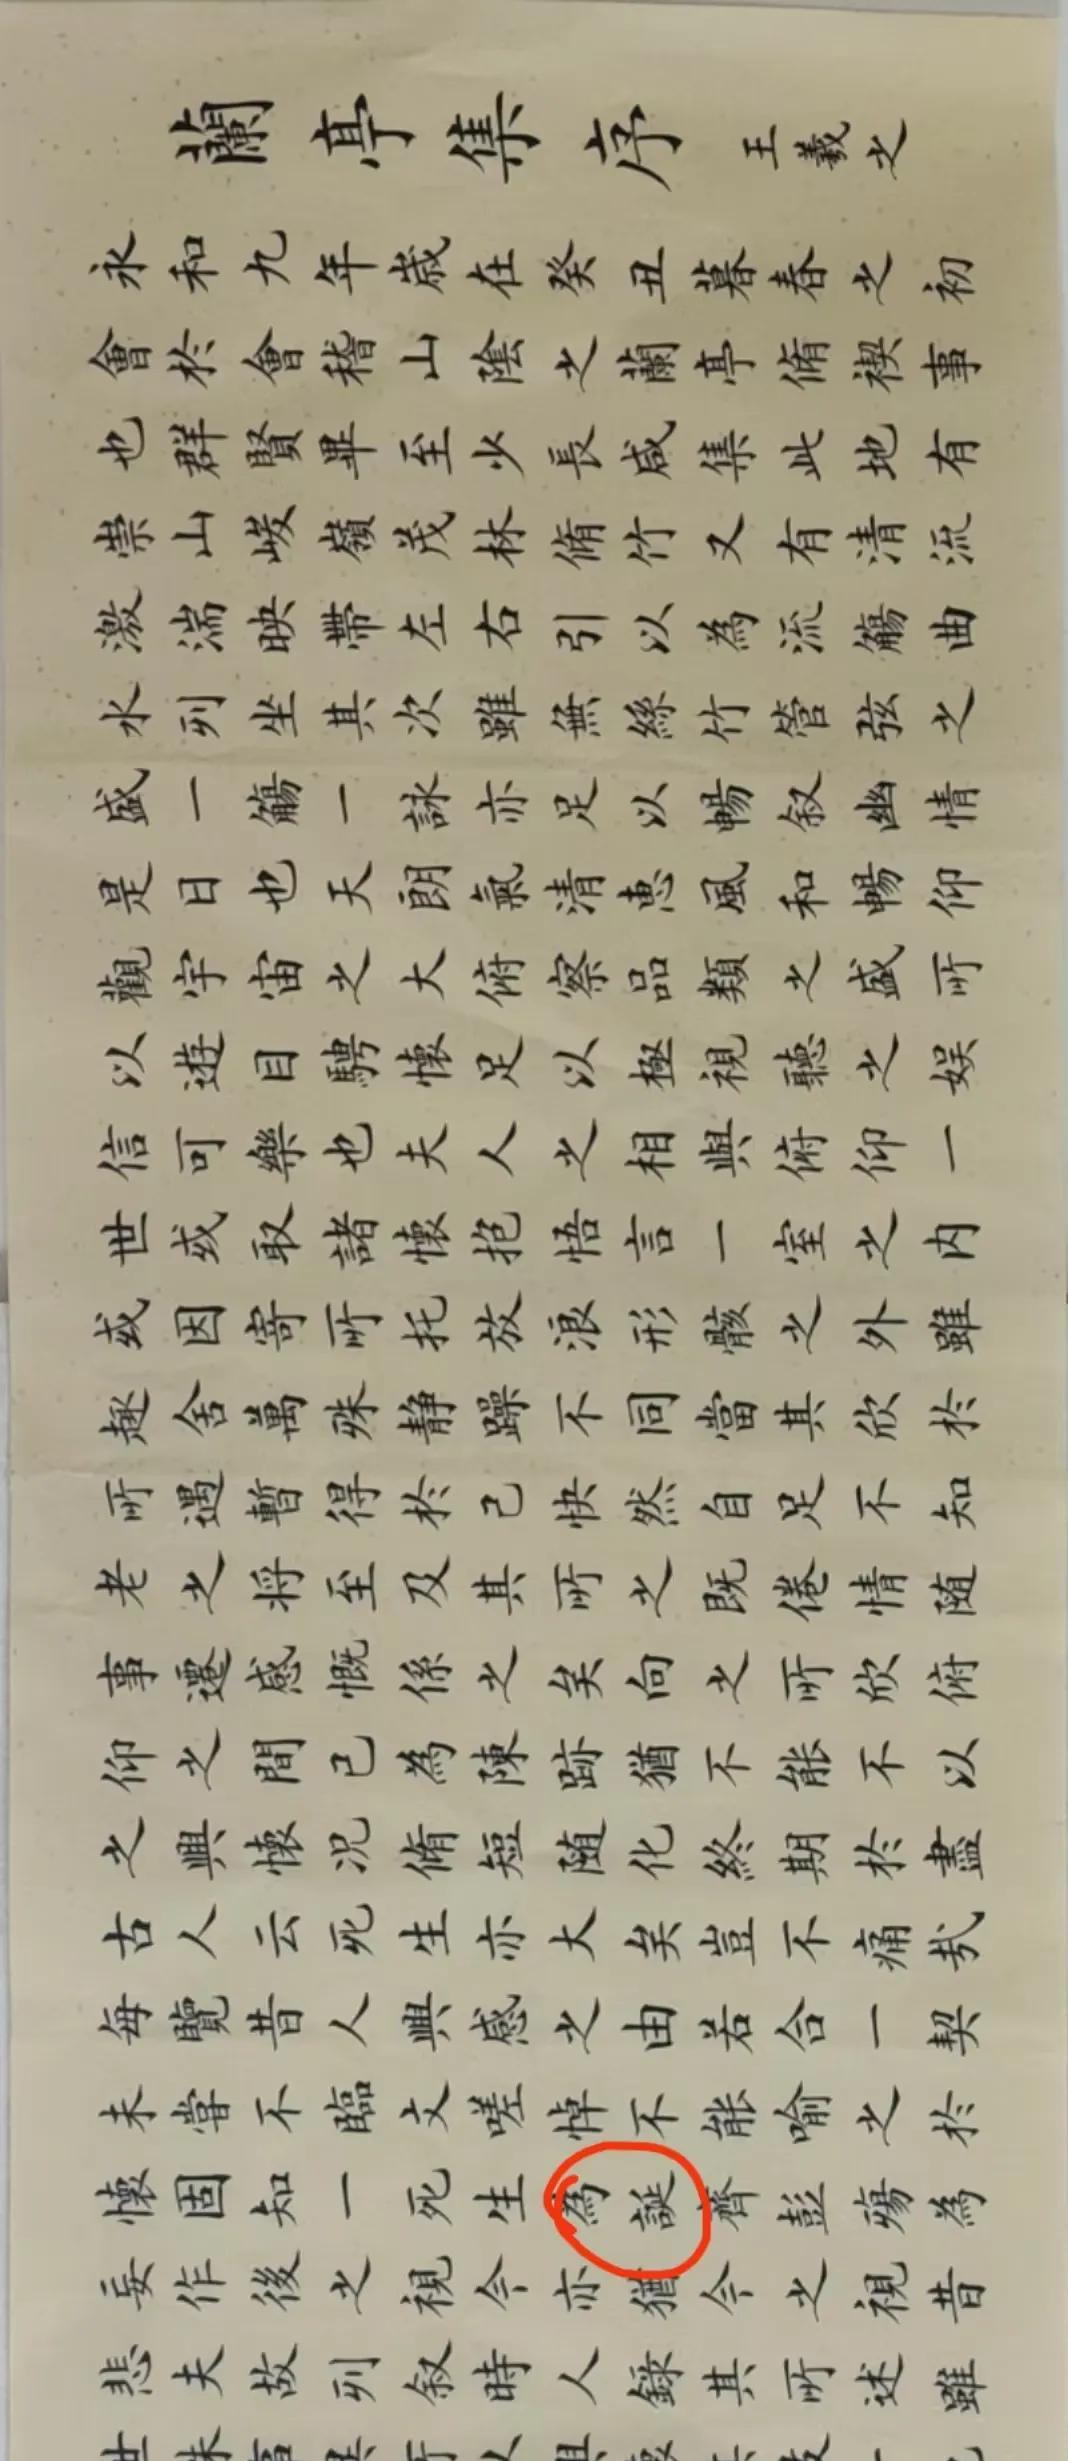 蘭亭集序 王羲之
永和九年歲在癸丑暮春之初
會於會稽山陰之蘭亭脩禊事
也群賢畢至少長咸集此地有
崇山峻嶺茂林脩竹又有清流
激湍映帶左右引以為流觴曲
水列坐其次雖無絲竹管弦之
盛一觴一詠亦足以暢叙幽情
是日也天朗氣清惠風和暢仰
觀宇宙之大俯察品類之盛所
以遊目騁懷足以極視聽之娱
信可樂也夫人之相與俯仰一
世或取諸懷抱悟言一室之内
或因寄所托放浪形骸之外雖
趣舍萬殊静躁不同當其欣於
所遇暫得於己快然自足不知
老之将至及其所之既倦情随
事遷感慨係之矣向之所欣俯
仰之間已為陳跡猶不能不以
之興懷况脩短随化終期於盡
古人云死生亦大矣豈不痛哉
每覽昔人興感之由若合一契
未嘗不臨文嗟悼不能喻之於
懷固知一死生為誕齊彭殤為
妄作後之視今亦猶今之視昔
悲夫故列叙時人錄其所述雖